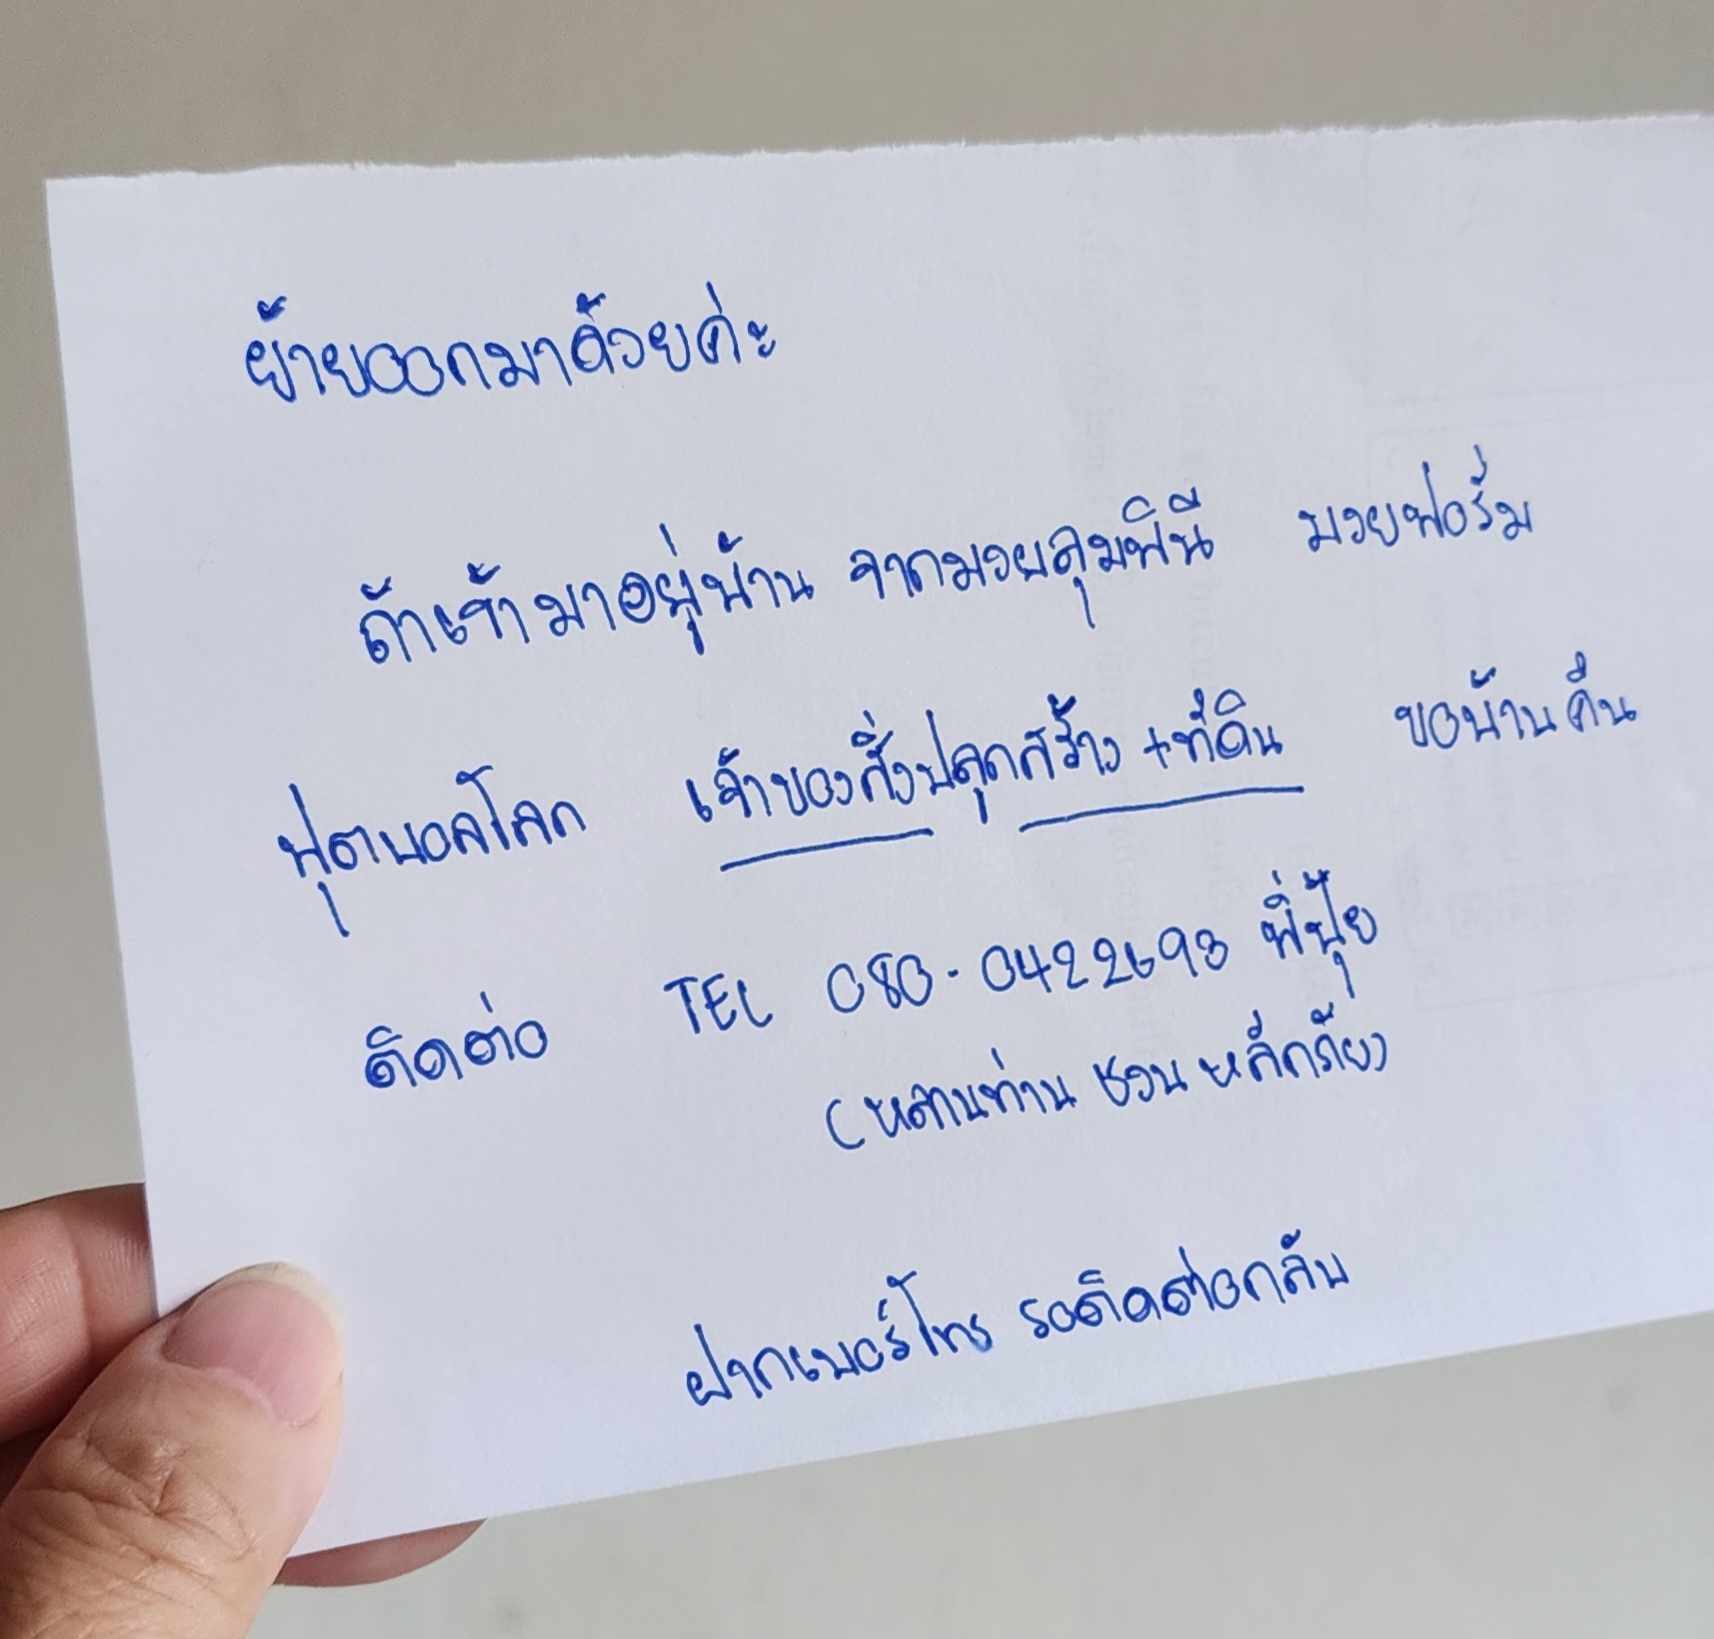 ย้ายออกมาด้วยค่ะ
ถ้าเข้ามาอยู่บ้าน จากมวยลุมพินี มวยฟอร์ม
ฟุตบอลโลก เจ้าของสิ่งปลูกสร้าง +ที่ดิน ขอบ้านคืน
ติดต่อ TEL 080-0422693 พี่ปุ้ย
(หลานท่าน ชวน หลีกภัย)
ฝากเบอร์โทร รอติดต่อกลับ